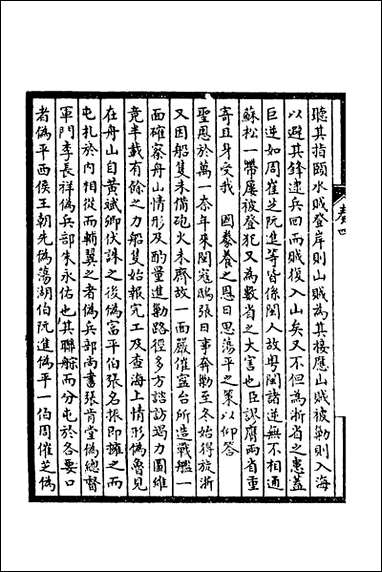 聽其指頤水賊登岸則山賊為其接應山賊被勦則入海
以避其鋒逮兵回而賊復入山矣又不但為浙省之患蓋
巨逆如周崔芝阮進等皆係閩人故粵閩諸逆無不相通
蘇松一帶屢被登犯又為數省之大害也臣謬膺兩省重
寄且身受我　國豢養之恩日思蕩平之策以仰答
聖恩於萬一奈年來閩寇鴟張日事奔勦至冬始得旋浙
又因船隻未備砲火未齊故一面嚴催寧台所造戰艦一
面確察舟山情形及酌量進勦路徑多方諮訪竭力圖維
竟半載有餘之力船隻始報完工及查海上情形偽魯見
在舟山自黃斌卿伏誅之後偽富平伯張名振即擁之而
屯扎於內相從而輔翼之者偽兵部尚書張肯堂偽總督
軍門李長祥偽兵部朱永佑也其聯䑸而分屯於各要口
者偽平西侯王朝先偽蕩湖伯阮進偽平一伯周崔芝偽
卷四